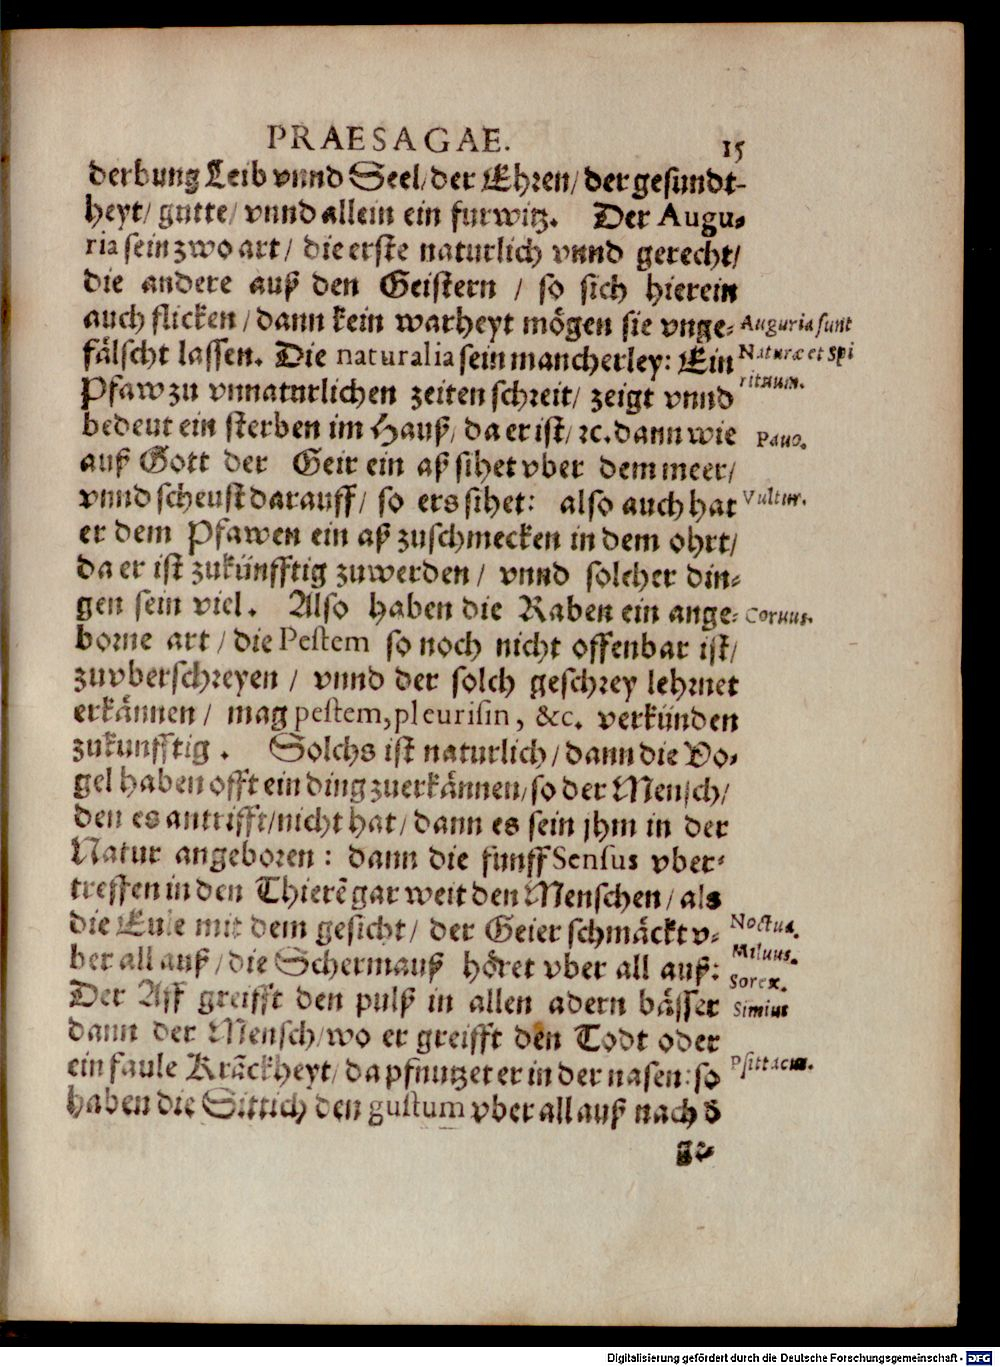 PRAESAGAE. 15
derbung Leib vnnd Seel/der Ehren/der gesundt-
heyt/ gutte/ vnnd allein ein furwitz. Der Augu-
ria sein zwo art/ die erste naturlich vnnd gerecht/
die andere auß den Geistern / so sich hierein
auch flicken/dann kein warheyt mögen sie vnge-
Auguria sunt
fälscht lassen. Die naturalia sein mancherley: Ein
Naturæ et Spi
Pfaw zu vnnaturlichen zeiten schreit/ zeigt vnnd
rituum.
bedeut ein sterben im Hauß/ da er ist/ ꝛc. dann wie
Pavo.
auß Gott der Geir ein aß sihet vber dem meer/
vnnd scheust darauff/ so ers sihet: also auch hat
Vultur.
er dem Pfawen ein aß zuschmecken in dem ohrt/
da er ist zukünfftig zuwerden/ vnnd solcher din-
gen sein viel. Also haben die Raben ein ange-
Coruus.
borne art/die Pestem so noch nicht offenbar ist/
zuvberschreyen / vnnd der solch geschrey lehrnet
erkännen/ mag pestem, pleurisin, &c. verkünden
zukunfftig. Solchs ist naturlich/dann die Vo-
gel haben offt ein ding zuerkännen/so der Mensch/
den es antrifft/nicht hat/dann es sein jhm in der
Natur angeboren: dann die funff Sensus vber-
treffen in den Thierē gar weit den Menschen/als
die Eule mit dem gesicht/ der Geier schmäckt v-
Noctua.
ber all auß/die Schermauß höret vber all auß:
Miluus.
Sorex.
Der Aff greifft den pulß in allen adern bässer
Simius
dann der Mensch/wo er greifft den Todt oder
ein faule Kräckheyt/da pfnutzet er in der nasen: so
Psittacus.
haben die Sittich den gustum vber all auß nach d̄